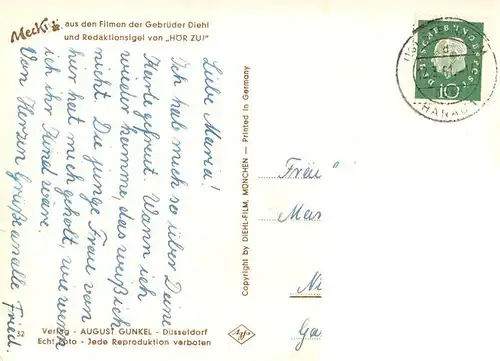 Mecki
aus den Filmen der Gebrüder Diehl
und Redaktionsigel von „HÖR ZU!"
Liebe Maria!
Ich hab mich so über Deine
Karte gefreut. Wann ich
wieder komme, das weiß ich
nicht. Die junge Frau von
hier hat mich geholt, wie wenn
ich ihr Kind wäre.
Von Herzen Grüße an alle Fried.
32
Verlag - AUGUST GUNKEL - Düsseldorf
Echt Foto - Jede Reproduktion verboten
Copyright by DIEHL-FILM, MÜNCHEN — Printed in Germany
Agfa
Fräu
Mar
Ni
Ga
DEUTSCHE BUNDESPOST
10
HANAU